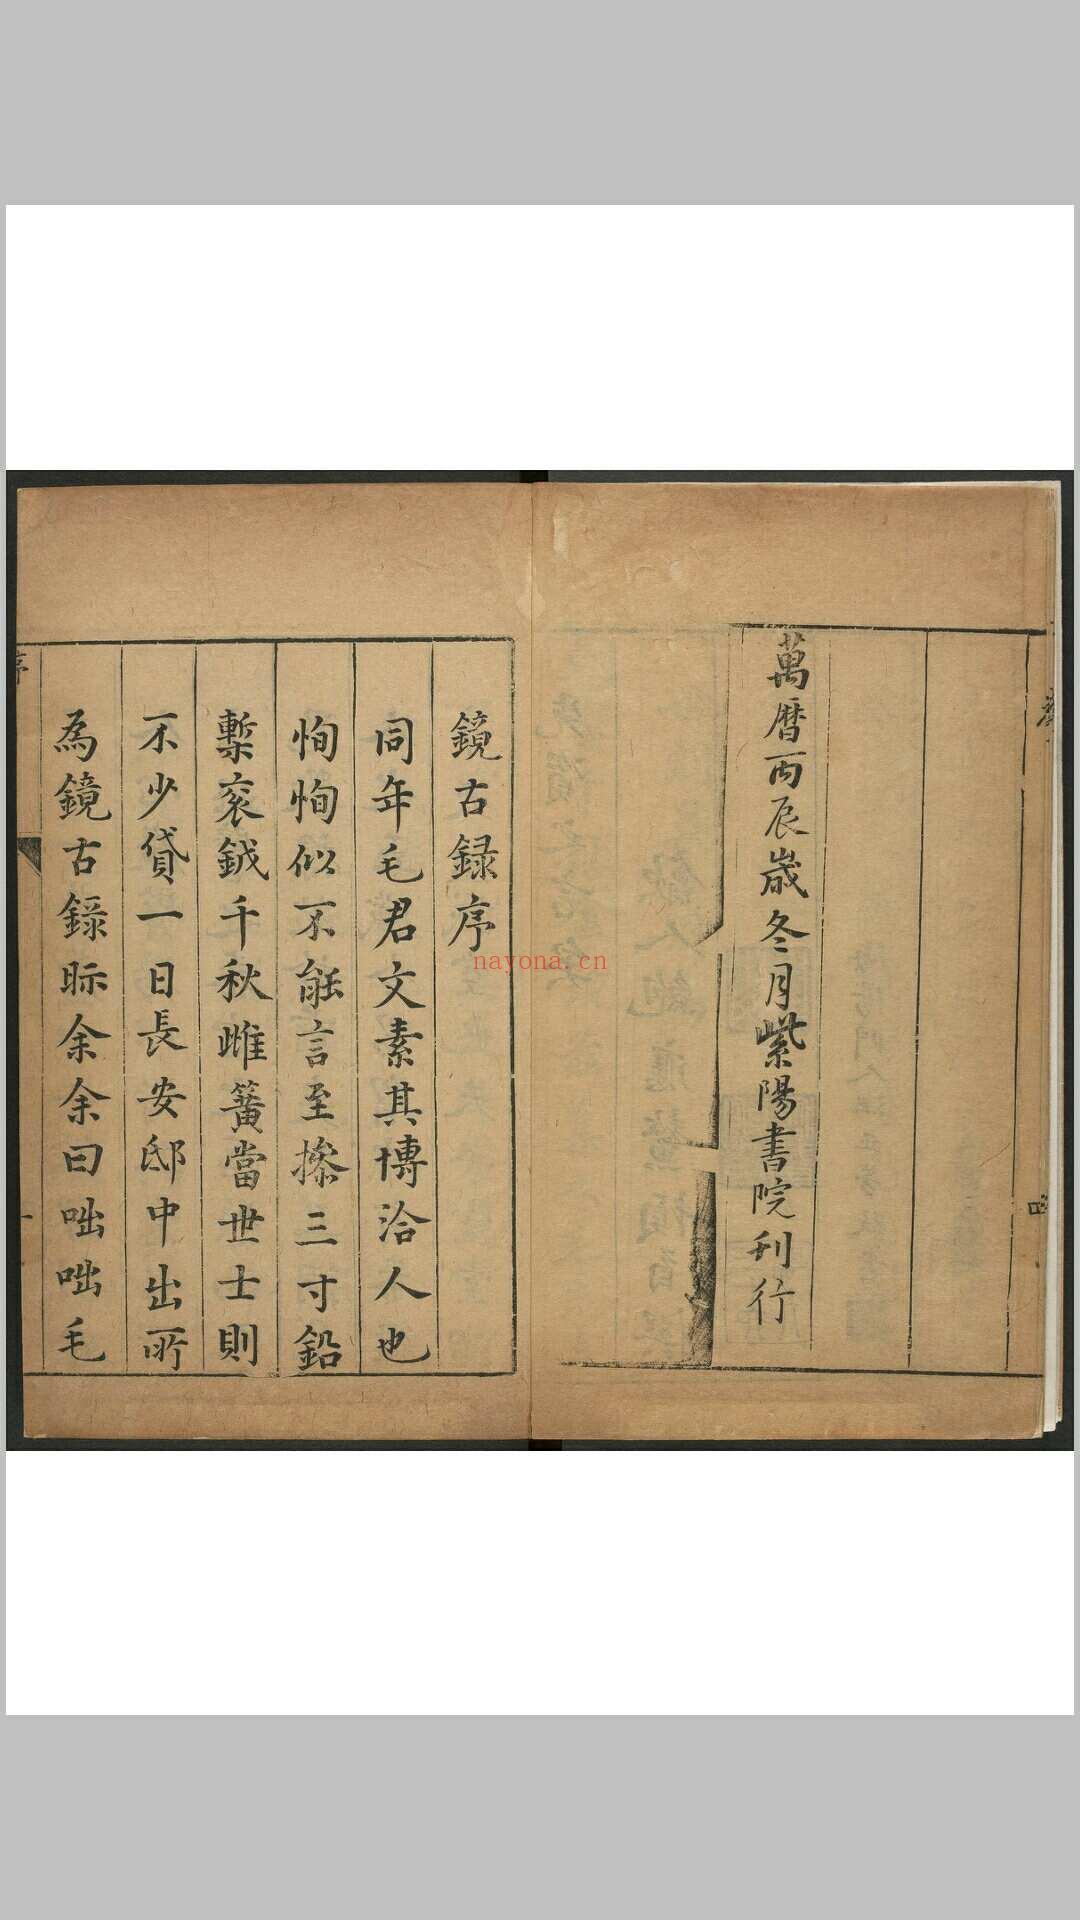 萬曆丙辰歲冬月紫陽書院刋行
四
鏡古録序
同年毛君文素其博洽人也
恂恂似不能言至摻三寸鉛
槧衮鉞千秋雌簧當世士則
不少貸一日長安邸中出所
為鏡古錄眎余余曰咄咄毛
序
一
nayona.cn